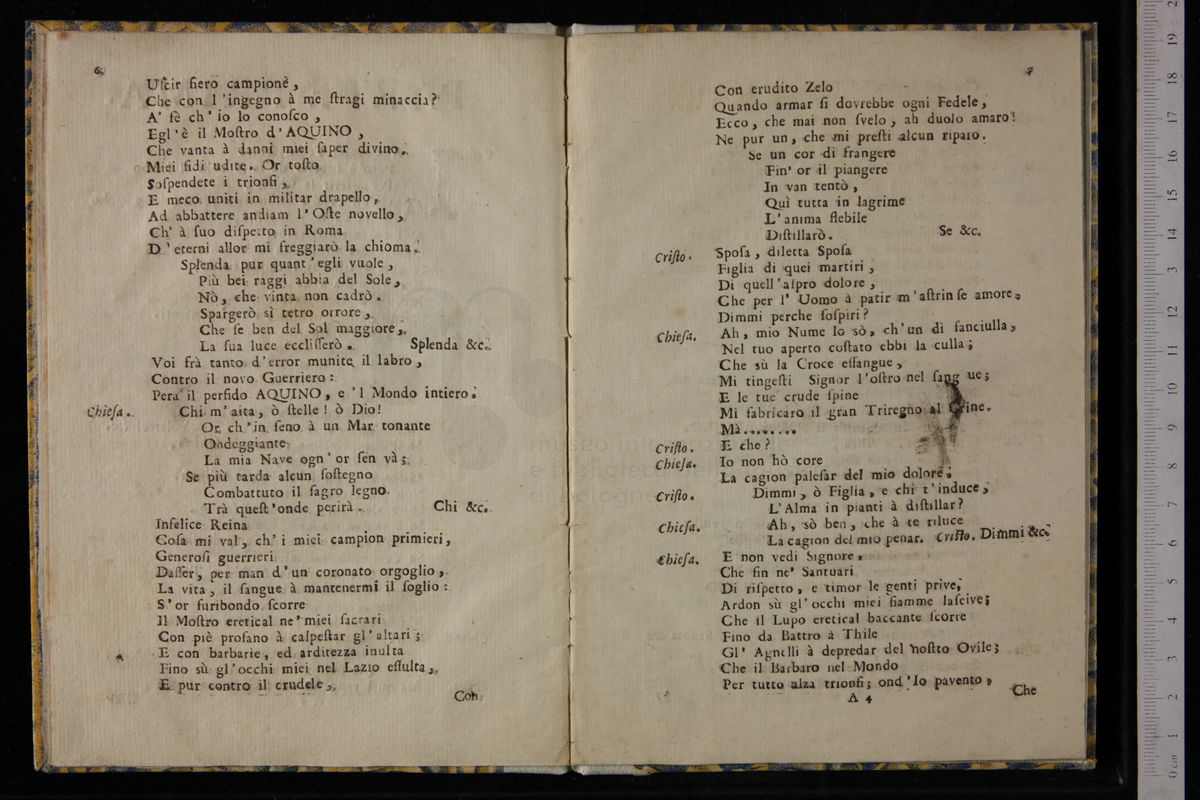 6.
Uſcir fiero campione,
Che con l'ingegno à me ſtragi minaccia?
A' fè ch' io lo conoſco,
Egl'è il Moſtro d'AQUINO,
Che vanta à danni miei ſaper divino.
Miei fidi udite. Or toſto
Soſpendete i trionfi,
E meco uniti in militar drapello,
Ad abbattere andiam l'Oſte novello,
Ch' à ſuo diſpetto in Roma
D'eterni allor mi freggiarò la chioma.
Splenda pur quant'egli vuole,
Più bei raggi abbia del Sole,
Nò, che vinta non cadrò.
Spargerò sì tetro orrore,
Che ſe ben del Sol maggiore,
La ſua luce eccliſſerò. Splenda &c.
Voi frà tanto d'error munite il labro,
Contro il novo Guerriero:
Pera il perfido AQUINO, e 'l Mondo intiero.
Chieſa. Chi m'aita, ò ſtelle! ò Dio!
Or ch'in ſeno à un Mar tonante
Ondeggiante
La mia Nave ogn'or ſen và;
Se più tarda alcun ſoſtegno
Combattuto il ſagro legno
Trà queſt'onde perirà. Chi &c.
Infelice Reina
Coſa mi val, ch' i miei campion primieri,
Generoſi guerrieri
Daſſer, per man d'un coronato orgoglio,
La vita, il ſangue à mantenermi il ſoglio:
S'or furibondo ſcorre
Il Moſtro eretical ne' miei ſacrari
Con piè profano à calpeſtar gl'altari;
E con barbarie, ed arditezza inulta
Fino sù gl'occhi miei nel Lazio eſſulta,
E pur contro il crudele,
Con
7
Con erudito Zelo
Quando armar ſi dovrebbe ogni Fedele,
Ecco, che mai non ſvelo, ah duolo amaro!
Ne pur un, che mi preſti alcun riparo.
Se un cor di frangere
Fin' or il piangere
In van tentò,
Quì tutta in lagrime
L'anima flebile
Diſtillarò. Se &c.
Criſto. Spoſa, diletta Spoſa
Figlia di quei martiri,
Di quell'aſpro dolore,
Che per l' Uomo à patir m'aſtrinſe amore,
Dimmi perche ſoſpiri?
Chieſa. Ah, mio Nume lo sò, ch'un dì fanciulla,
Nel tuo aperto coſtato ebbi la culla;
Che sù la Croce eſſangue,
Mi tingeſti Signor l'oſtro nel ſangue;
E le tue crude ſpine
Mi fabricaro il gran Triregno al Crine.
Mà........
Criſto. E che?
Chieſa. Io non hò core
La cagion paleſar del mio dolore.
Criſto. Dimmi, ò Figlia, e chi t'induce,
L'Alma in pianti à diſtillar?
Chieſa. Ah, sò ben, che à te riluce
La cagion del mio penar. Criſto. Dimmi &c.
Chieſa. E non vedi Signore,
Che fin ne' Santuari
Di riſpetto, e timor le genti prive,
Ardon sù gl'occhi miei fiamme laſcive;
Che il Lupo eretical baccante ſcorre
Fino da Battro à Thile
Gl' Agnelli à depredar del noſtro Ovile;
Che il Barbaro nel Mondo
Per tutto alza trionfi; ond'Io pavento,
A 4
Che